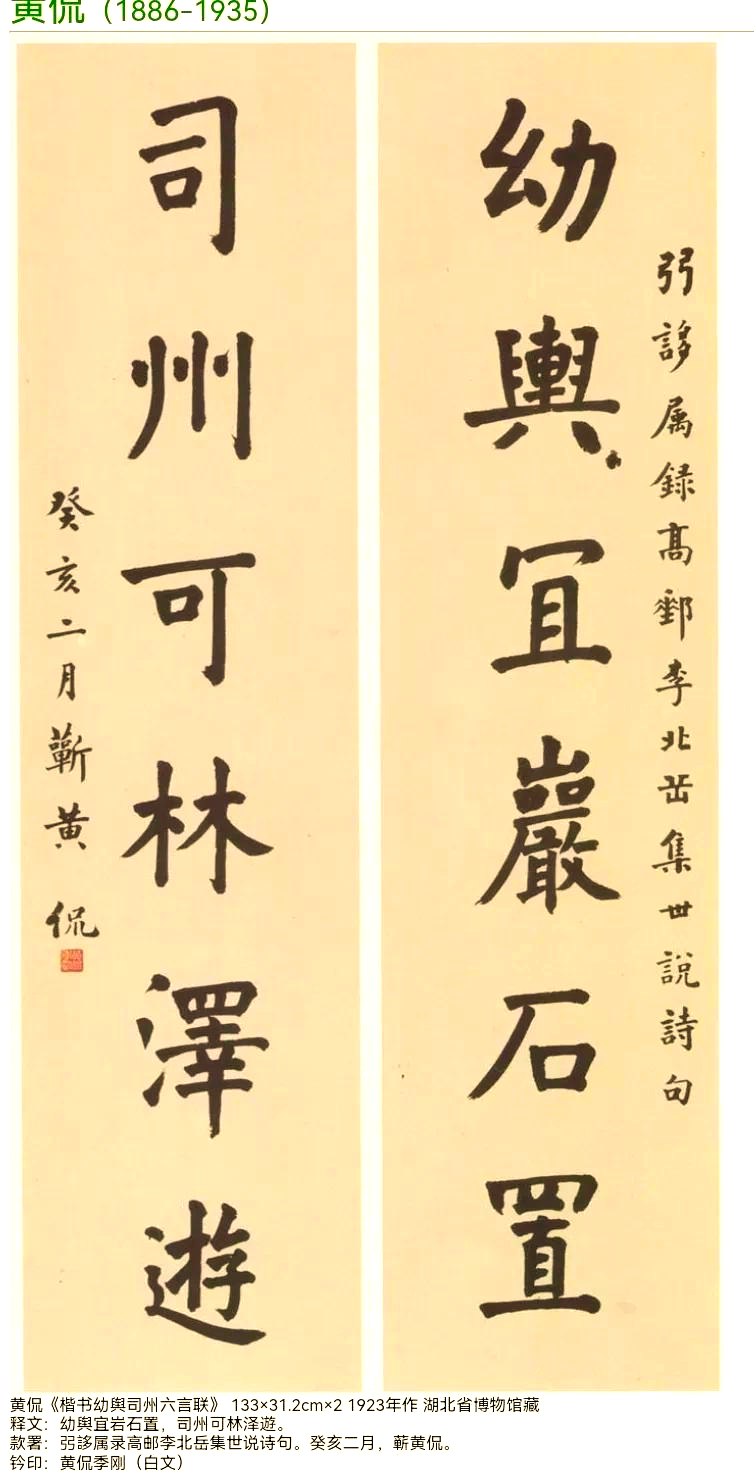 黄侃（1886-1935）
幼輿宜巖石置
弜誃属録高郵李北岳集世說詩句
司州可林澤遊
癸亥二月蘄黄侃
黄侃《楷书幼舆司州六言联》 133×31.2cm×2 1923年作 湖北省博物馆藏
释文：幼舆宜岩石置，司州可林泽遊。
款署：弜誃属录高邮李北岳集世说诗句。癸亥二月，蕲黄侃。
钤印：黄侃季刚（白文）